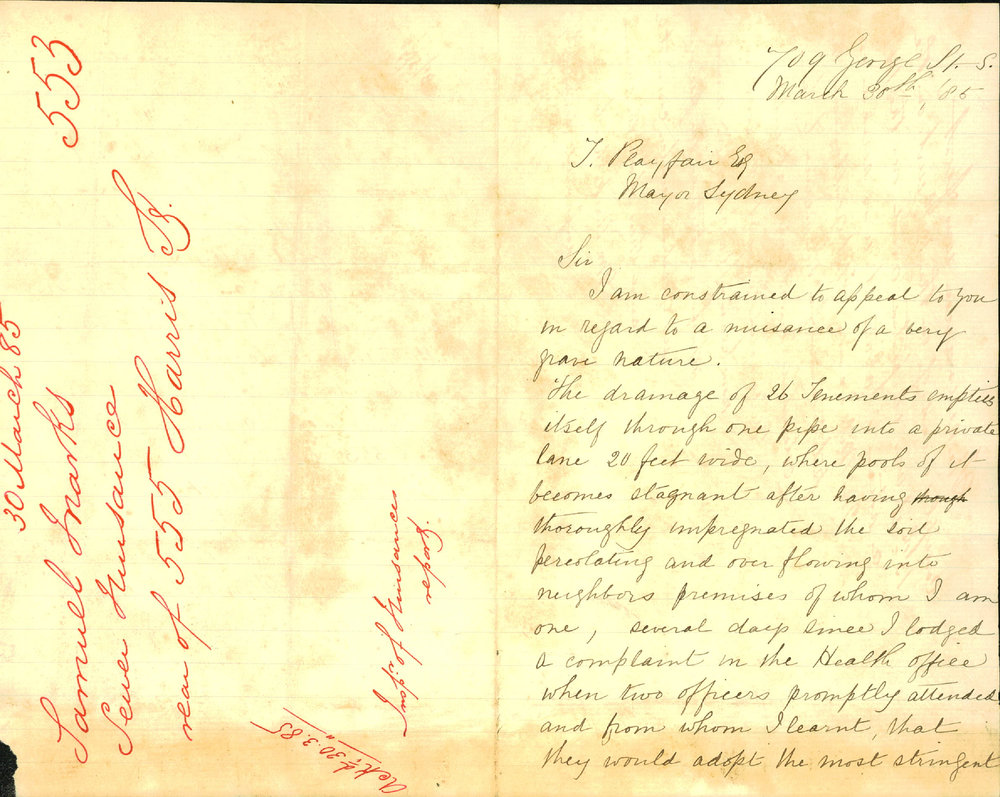 553
30 March 85
Samuel Marks
Sewer Nuisance
rear of 555 Harris St.
Inspr. of Nuisances
report.
Ackd. 30.3.85
709 George St. S.
March 30th, '85
T. Playfair Esq
Mayor Sydney
Sir
I am constrained to appeal to you
in regard to a nuisance of a very
grave nature.
The drainage of 26 Tenements empties
itself through one pipe into a private
lane 20 feet wide, where pools of it
becomes stagnant after having though
thoroughly impregnated the soil
percolating and over flowing into
neighbors premises of whom I am
one, several days since I lodged
a complaint in the Health office
when two officers promptly attended
and from whom I learnt, that
they would adopt the most stringent